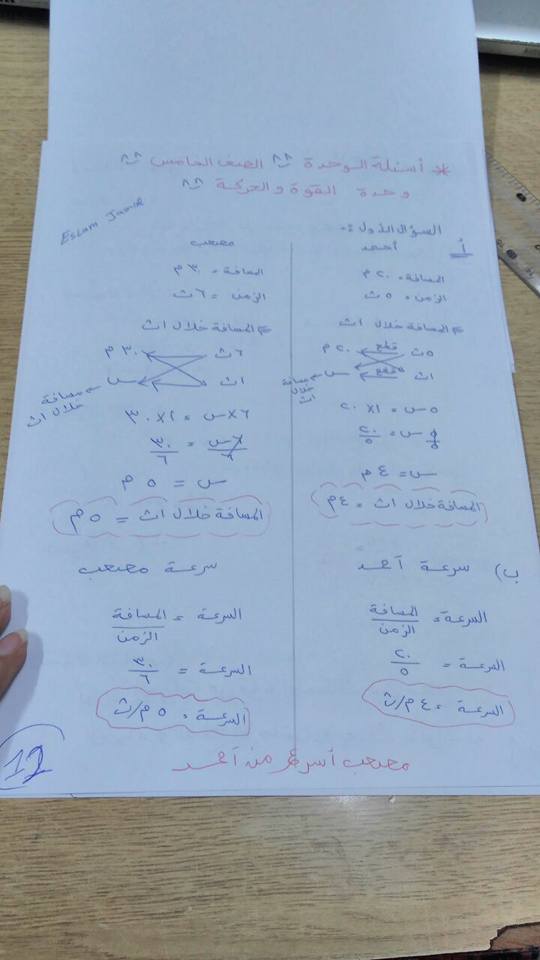 * أسئلة الوحدة ^^ الصف الخامس ^^
وحدة القوة والحركة ^^
Eslam Jamal
السؤال الأول :-
أ
أحمد
المسافة = ٢٠ م
الزمن = ٥ ث
المسافة خلال ١ث
٥ث قطع ٢٠ م
١ث قطع س ← مسافة خلال ١ث
٥ س = ١ × ٢٠
٥ س / ٥ = ٢٠ / ٥
س = ٤ م
المسافة خلال ١ث = ٤ م
مصعب
المسافة = ٣٠ م
الزمن = ٦ ث
المسافة خلال ١ث
٦ث ٣٠ م
١ث س ← مسافة خلال ١ث
٦ × س = ١ × ٣٠
٦ س / ٦ = ٣٠ / ٦
س = ٥ م
المسافة خلال ١ث = ٥ م
ب) سرعة أحمد
السرعة = المسافة / الزمن
السرعة = ٢٠ / ٥
السرعة = ٤ م/ث
سرعة مصعب
السرعة = المسافة / الزمن
السرعة = ٣٠ / ٦
السرعة = ٥ م/ث
مصعب أسرع من أحمد
12